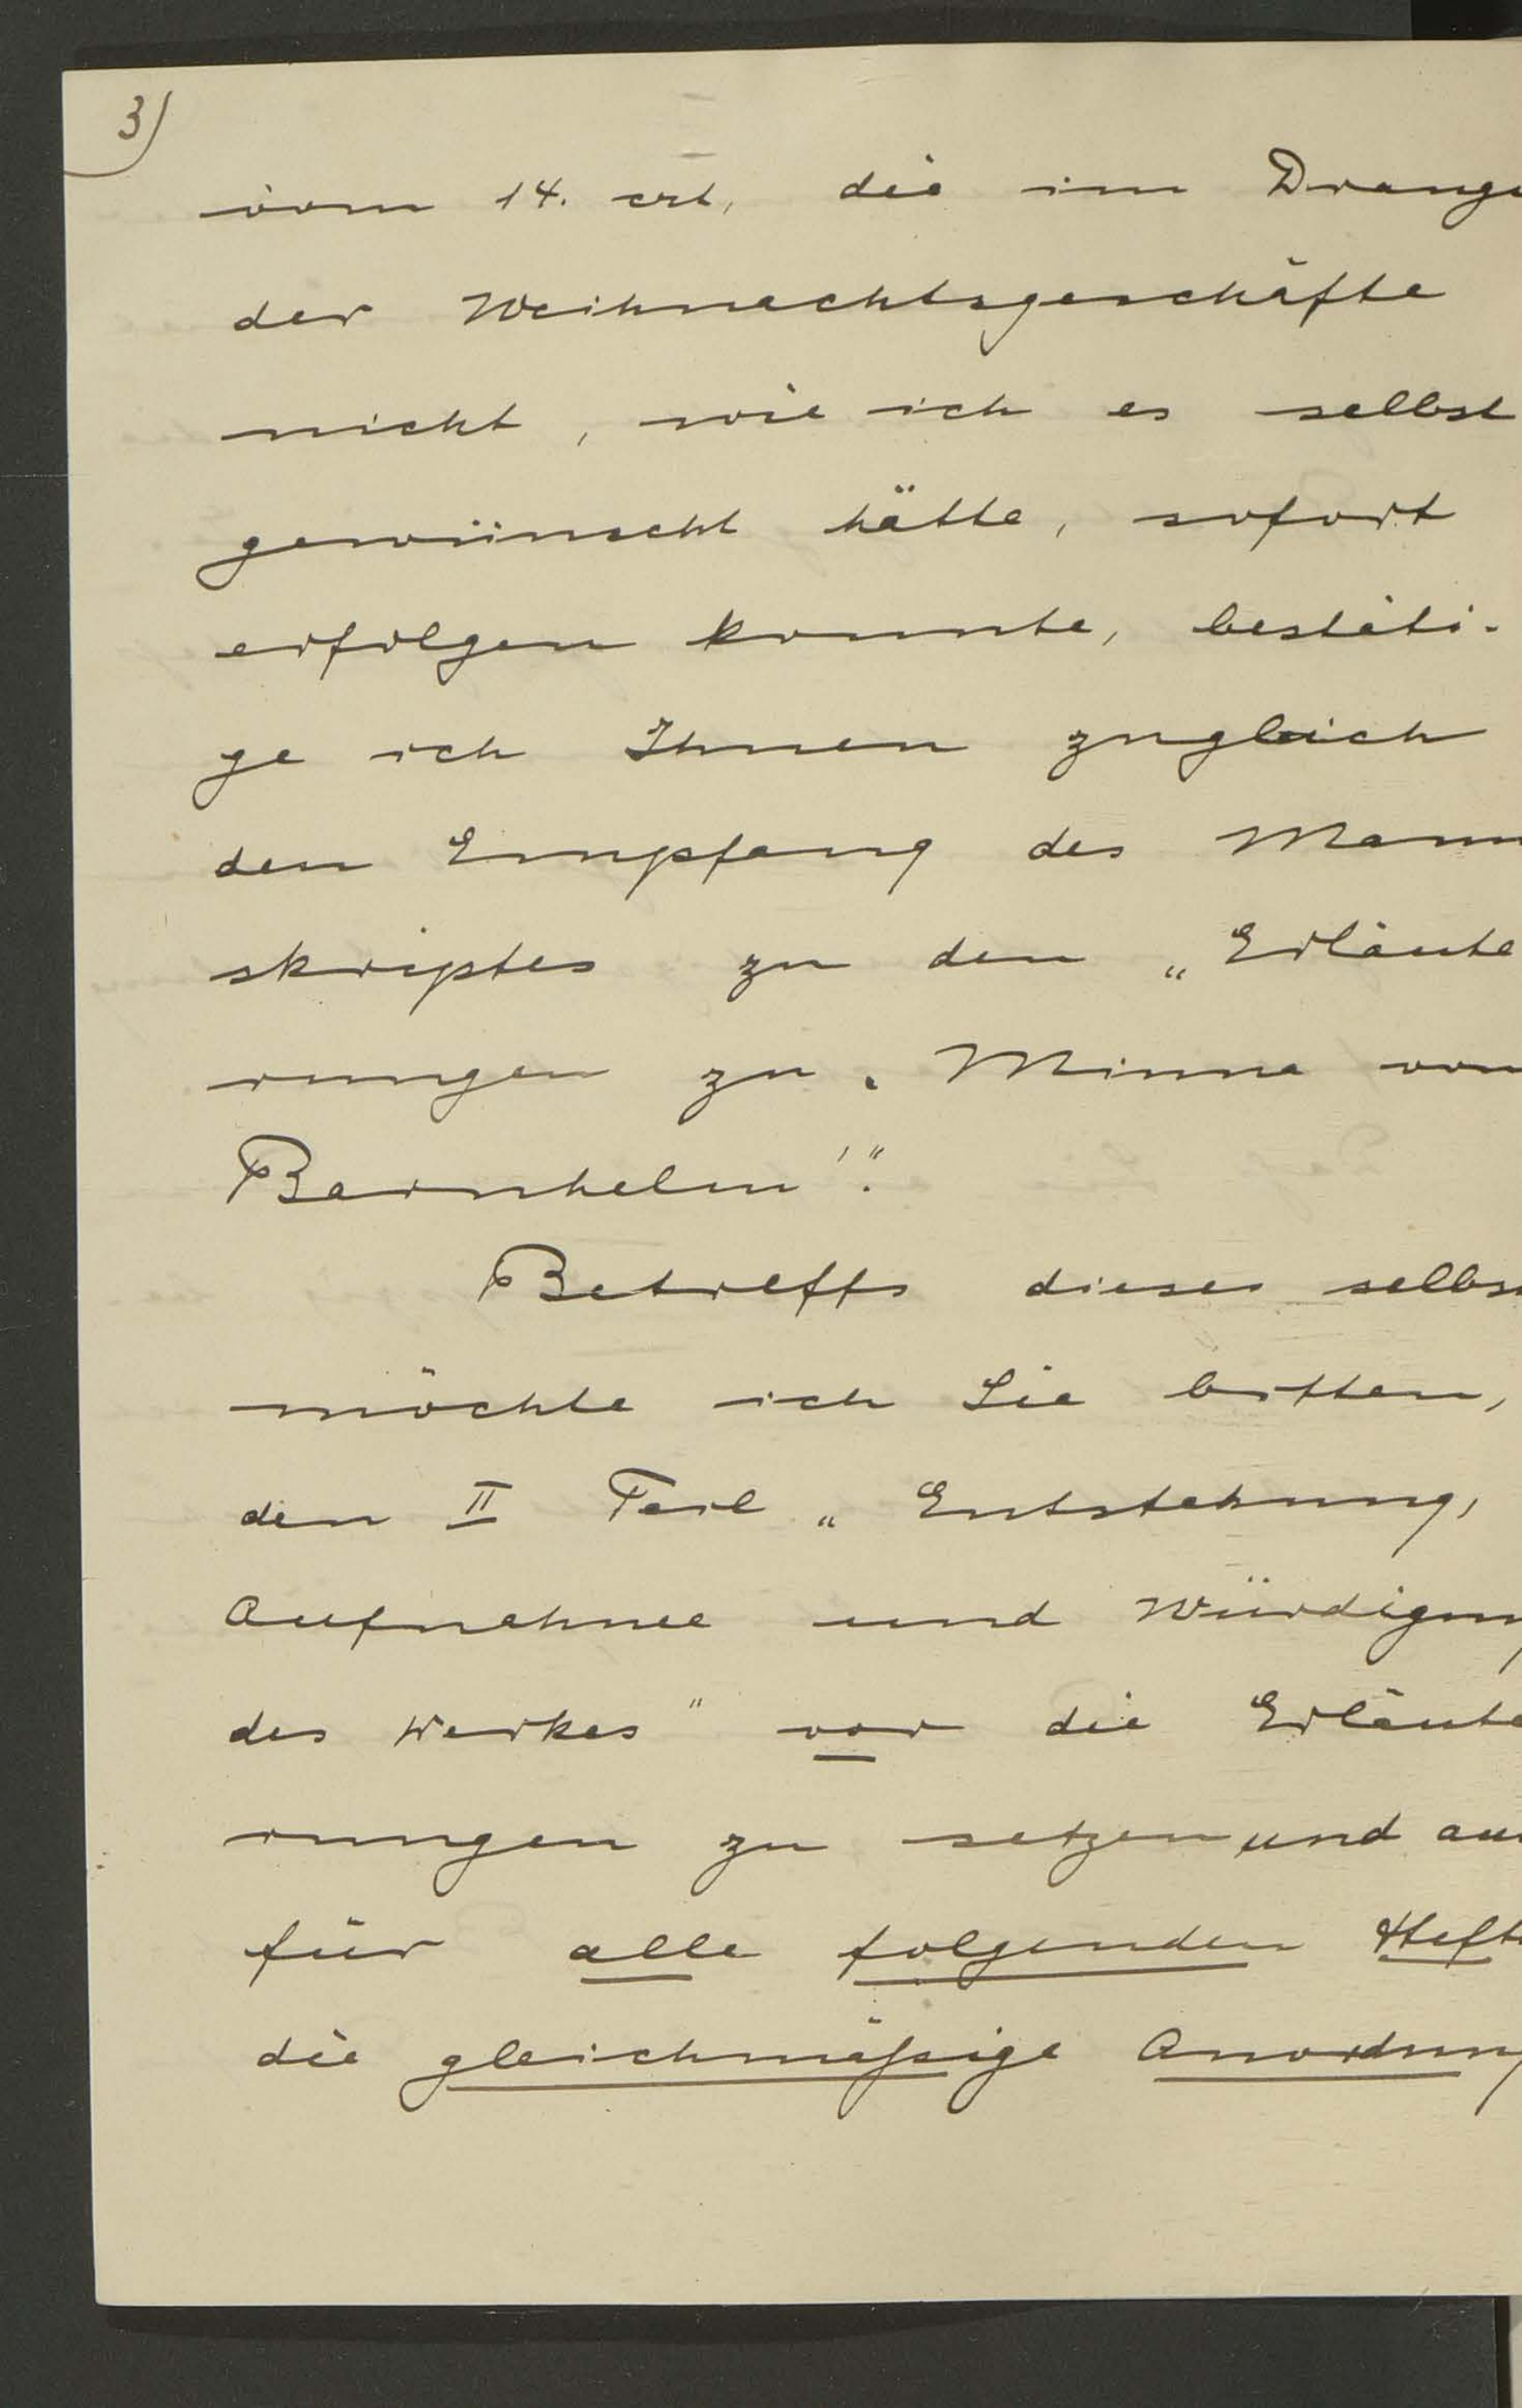 3)
vom 14. crt, die im Drange
der Weihnachtsgeschäfte
nicht, wie ich es selbst
gewünscht hätte, sofort
erfolgen konnte, bestäti-
ge ich Ihnen zugleich
den Empfang des Manu
skriptes zu den „Erläute
rungen zu ‚Minna von
Barnhelm'."
Betreffs dieses selbst
möchte ich Sie bitten,
den II Teil „Entstehung,
Aufnahme und Würdigung
des Werkes" vor die Erläute
rungen zu setzen und
für alle folgenden Hefte
die gleichmäßige Anordnung